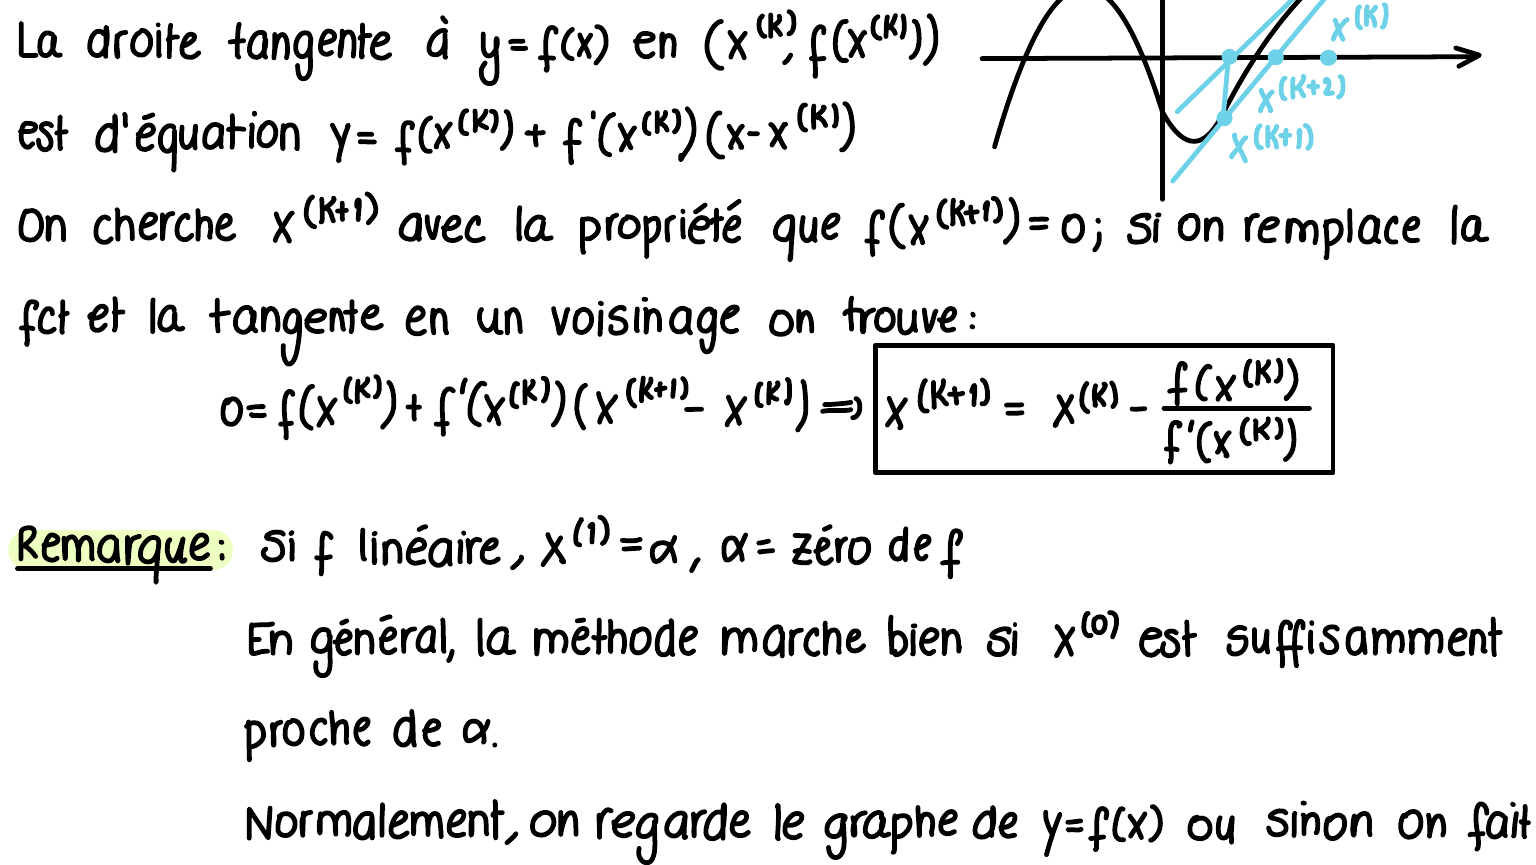 La droite tangente à y = f(x) en (x^(K), f(x^(K)))
x^(K)
est d'équation y = f(x^(K)) + f'(x^(K))(x - x^(K))
x^(K+2)
x^(K+1)
On cherche x^(K+1) avec la propriété que f(x^(K+1)) = 0 ; si on remplace la
fct et la tangente en un voisinage on trouve :
0 = f(x^(K)) + f'(x^(K))(x^(K+1) - x^(K)) ⇒ x^(K+1) = x^(K) - f(x^(K)) / f'(x^(K))
Remarque : Si f linéaire, x^(1) = α, α = zéro de f
En général, la méthode marche bien si x^(0) est suffisamment
proche de α.
Normalement, on regarde le graphe de y = f(x) ou sinon on fait